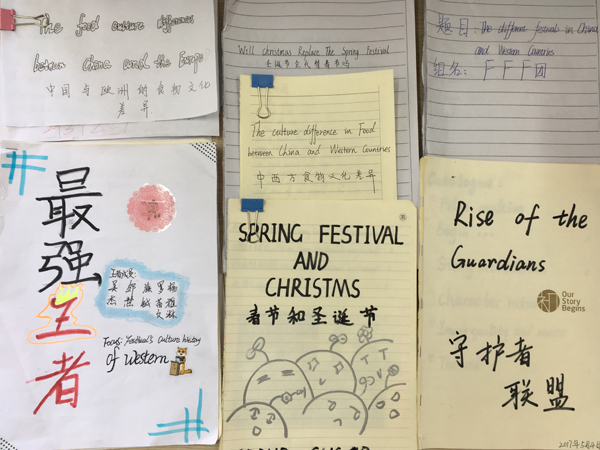 The food culture differences
between China and the Europe
中国与欧洲的食物文化
差异
Well christmas Replace The Spring Festival
圣诞节会代替春节吗
题目: The different festival in China
and Western Countries
组名: FFF团
The culture difference in Food
between China and Western Countries
中西方食物文化差异
最强王者
Focus: Festival's culture history
of Western
SPRING FESTIVAL
AND
CHRISTMS
春节和圣诞节
Rise of the
Guardians
Our
Story
Begins
守护者
联盟
2017年5月4日